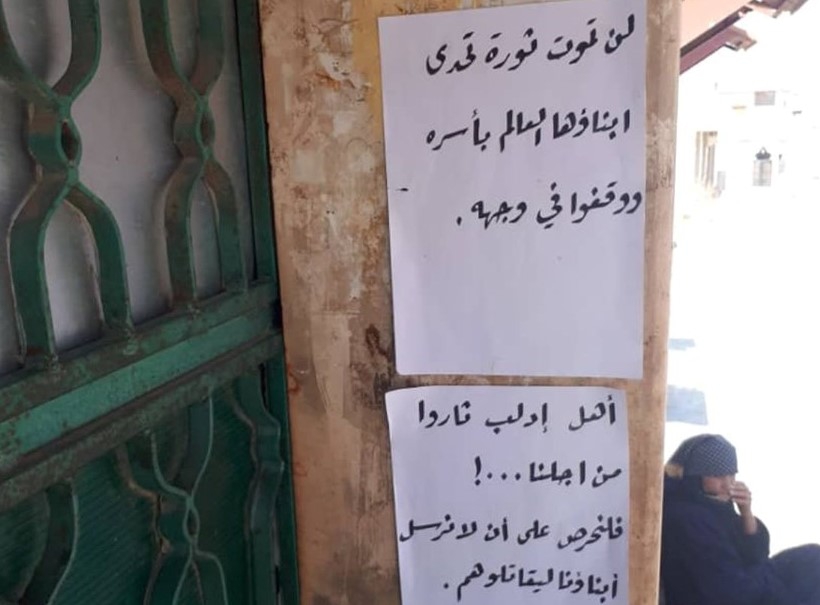 لن تموت ثورة تحدى
ابناؤها العالم بأسره
ووقفوا في وجهه .
أهل إدلب ثاروا
من اجلنا ...!
فلنحرص على أن لا نرسل
أبناؤنا ليقاتلوهم .